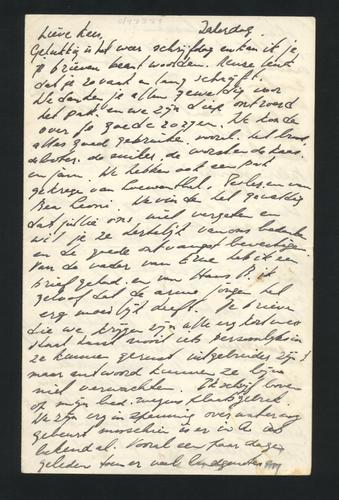 Zaterdag.
Lieve Kees,
Gelukkig is het weer schrijfdag en kan ik je
je brieven beantwoorden. Reuze leuk
dat je zo vaak en lang schrijft.
We danken je allen geweldig voor
het pak, en we zijn diep ontroerd
over je goede zorgen. We konden
alles goed gebruiken, vooral het brood
de boter, de uitjes, de worsten de kaas
en jam. We hebben ook een pak
gekregen van Loewenthal, Perles, en van
Bea. We vinden het geweldig
dat jullie ons niet vergeten en
wil je ze hartelijk van ons bedanken
en de goede ontvangst bevestigen.
Van de vader van heb ik een
brief gehad, en van Hans B. ik
geloof dat de arme jongen het
erg moeilijk heeft. De brieven
die we krijgen zijn alle erg kort, we
staat haast nooit iets persoonlijks in
ze kunnen gerust uitgebreider zijn!
maar antwoord kunnen ze bijna
niet verwachten. Ik schrijf boven
op mijn bed, wegens plaatsgebrek.
We zijn erg in spanning over wat er nog
gebeurt misschien is er in A. iets
bekend al. Vooral een paar dagen
geleden toen er veel